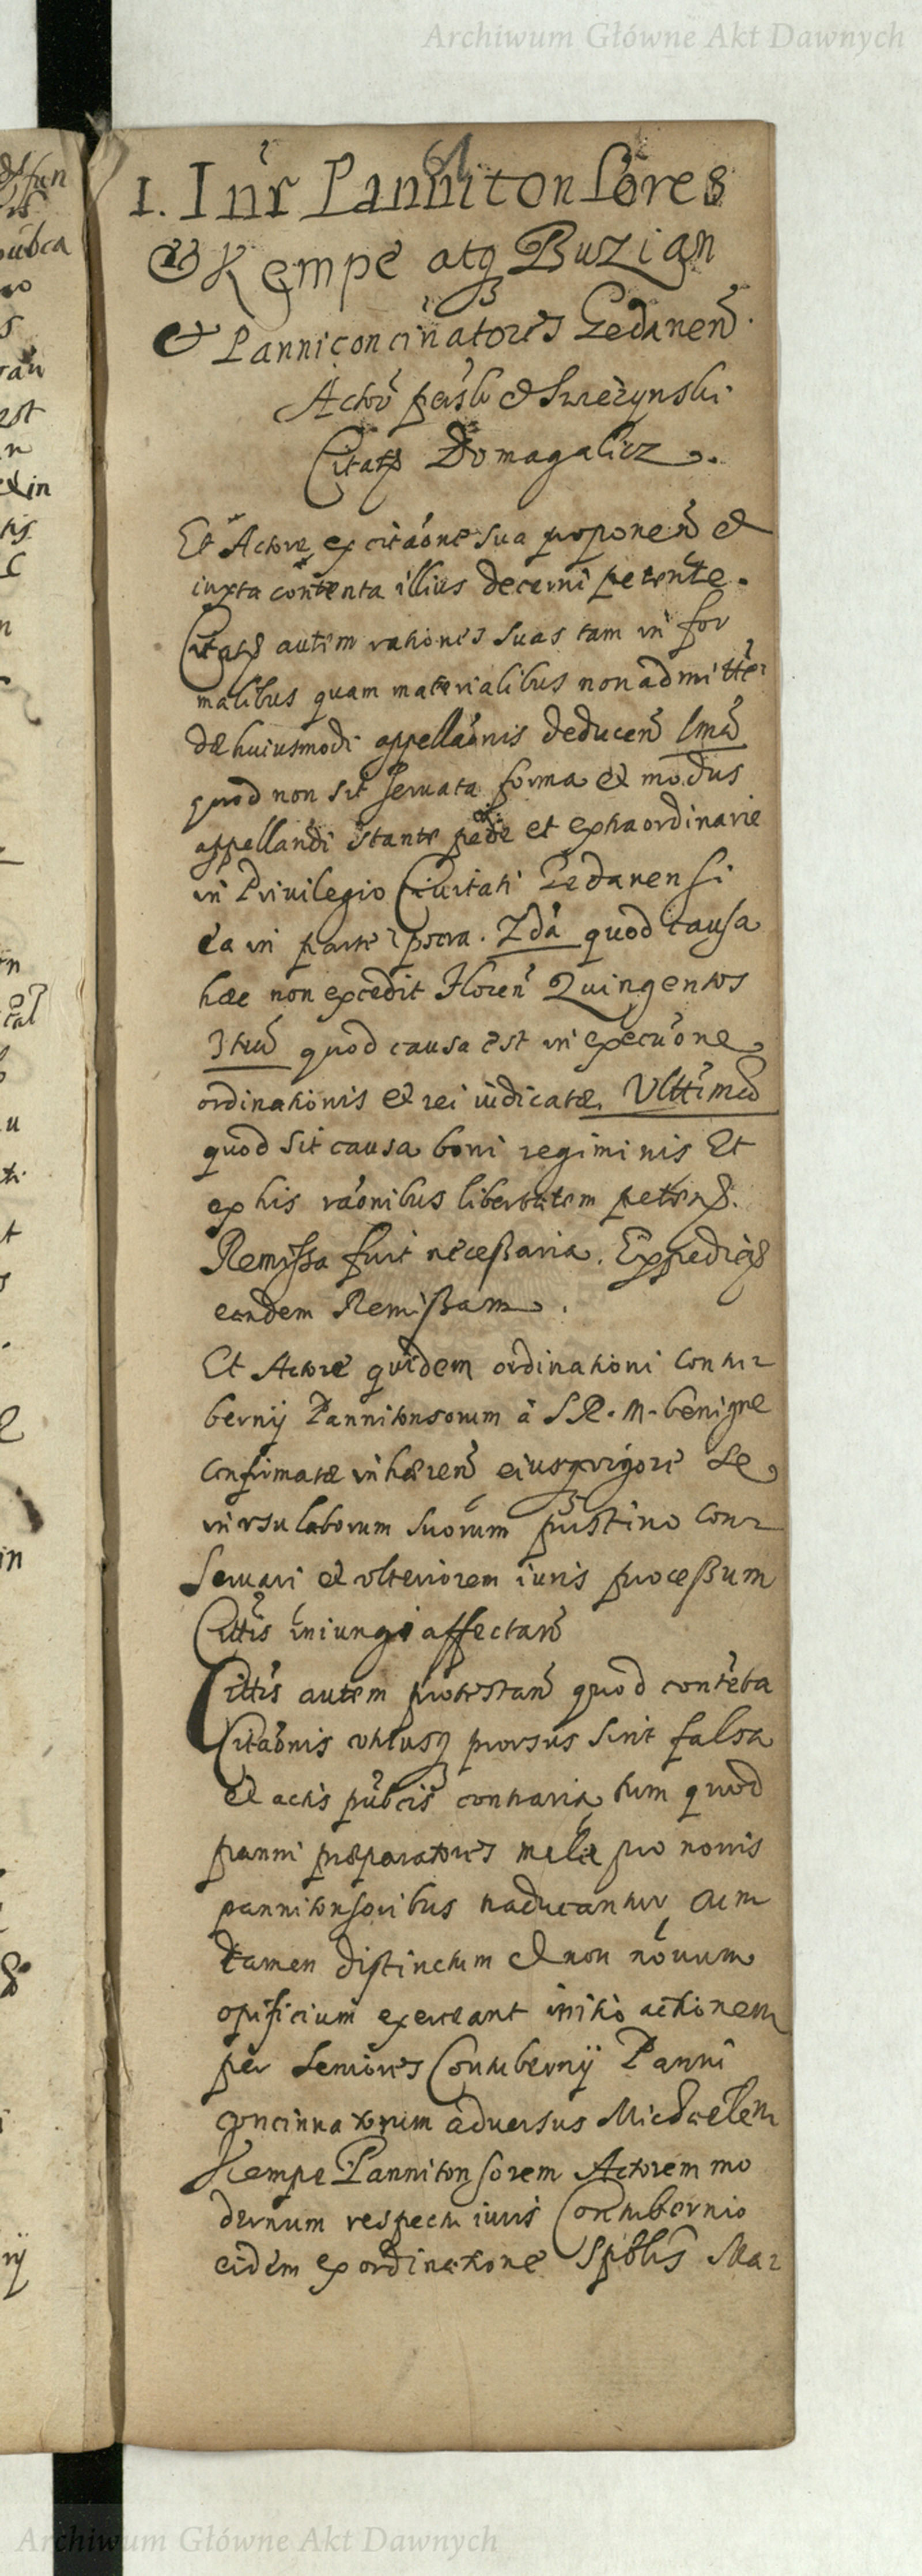 Archiwum Główne Akt Dawnych
61
1. Inr̃ Pannitonsores
& Kempe atq Buzian
& Panniconcinatores Gedanen̄
Actor̄ pers̄lr & Swiezynski
Citatꝰ Domagalicz.
Et Actore ex citãone sua proponen̄ &
iuxta contenta illius decerni petente.
Citatꝰ autem rationes suas tam in for
malibus quam materialibus non admitte
dæ huiusmodi appellãonis deducen̄ Imō
quod non sit seruata forma et modus
appellandi stante pede et extraordinarie
in Priuilegio Ciuitati Gedanensi
ea in parte. 2dō quod causa
hæc non excedit Floren̄ Quingentos
3tiō quod causa est in execũone
ordinationis et rei iudicatæ. Ulttimō
quod sit causa boni regiminis Et
ex his rãonibus libertatem petenꝭ.
Remissa fuit necessaria. Expediꝭ
eandem Remissam.
Et Actore quidem ordinationi contu
bernij Pannitonsorum â S. R. M. benigne
confirmatæ inhæren̄ eiusq vigore se
in vsu laborum suorum pristino con
seruari et vlteriorem iuris processum
Citt̄is iniungi affectan̄
Citt̄is autem protestan̄ quod contẽta
Citãonis vtriusq prorsus sint falsa
et actis pub̄cis contraria, tum quod
panni præparatores male pro nouis
pannitonsoribus traducantur cum
tamen distinctum & non nouum
opificium exerceant initio actionem
per Seniores Contubernij Panni
concinnatorum aduersus Michaelem
Kempe Pannitonsorem Actorem mo
dernum respectu iuris Contubernio
eidem ex ordinatione Spb̄lis Ma
Archiwum Główne Akt Dawnych